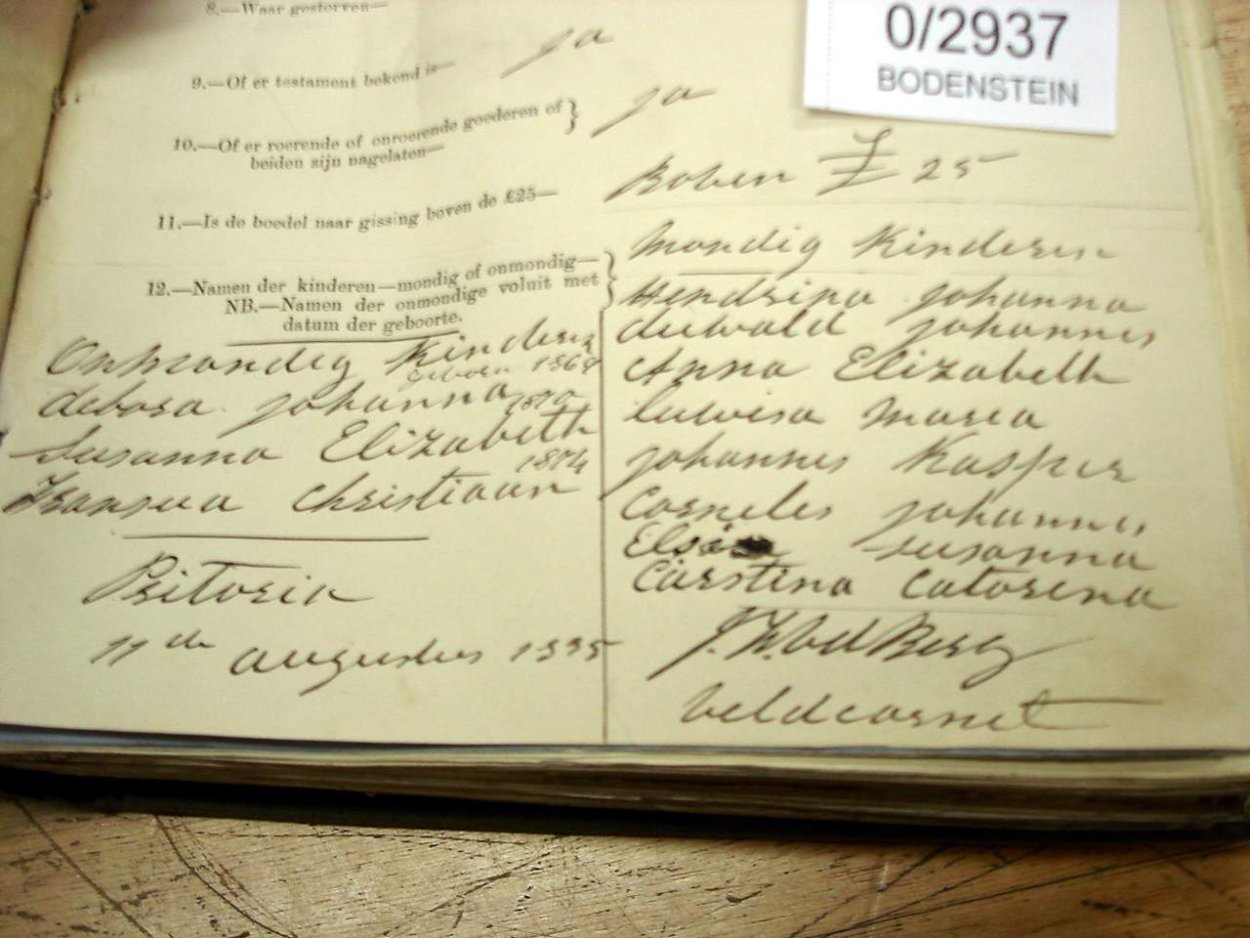 0/2937
BODENSTEIN
8.—Waar gestorven—
9.—Of er testament bekend is—
ja
10.—Of er roerende of onroerende goederen of
beiden zijn nagelaten—
ja
11.—Is de boedel naar gissing boven de £25—
Boven £ 25
12.—Namen der kinderen—mondig of onmondig—
NB.—Namen der onmondige voluit met
datum der geboorte.
Mondig Kinderen
Hendrina Johanna
diewald Johannes
Anna Elizabeth
luwisa Maria
Johannes Kasper
Corneles Johannes
Elsa Susanna
Carstina Catorena
Onmondig Kinderen
geboren 1868
debora Johanna
Susanna Elizabeth
1874
Fransua Christiaan
Pritoria
11de augustus 1895
Berg
veldcornet